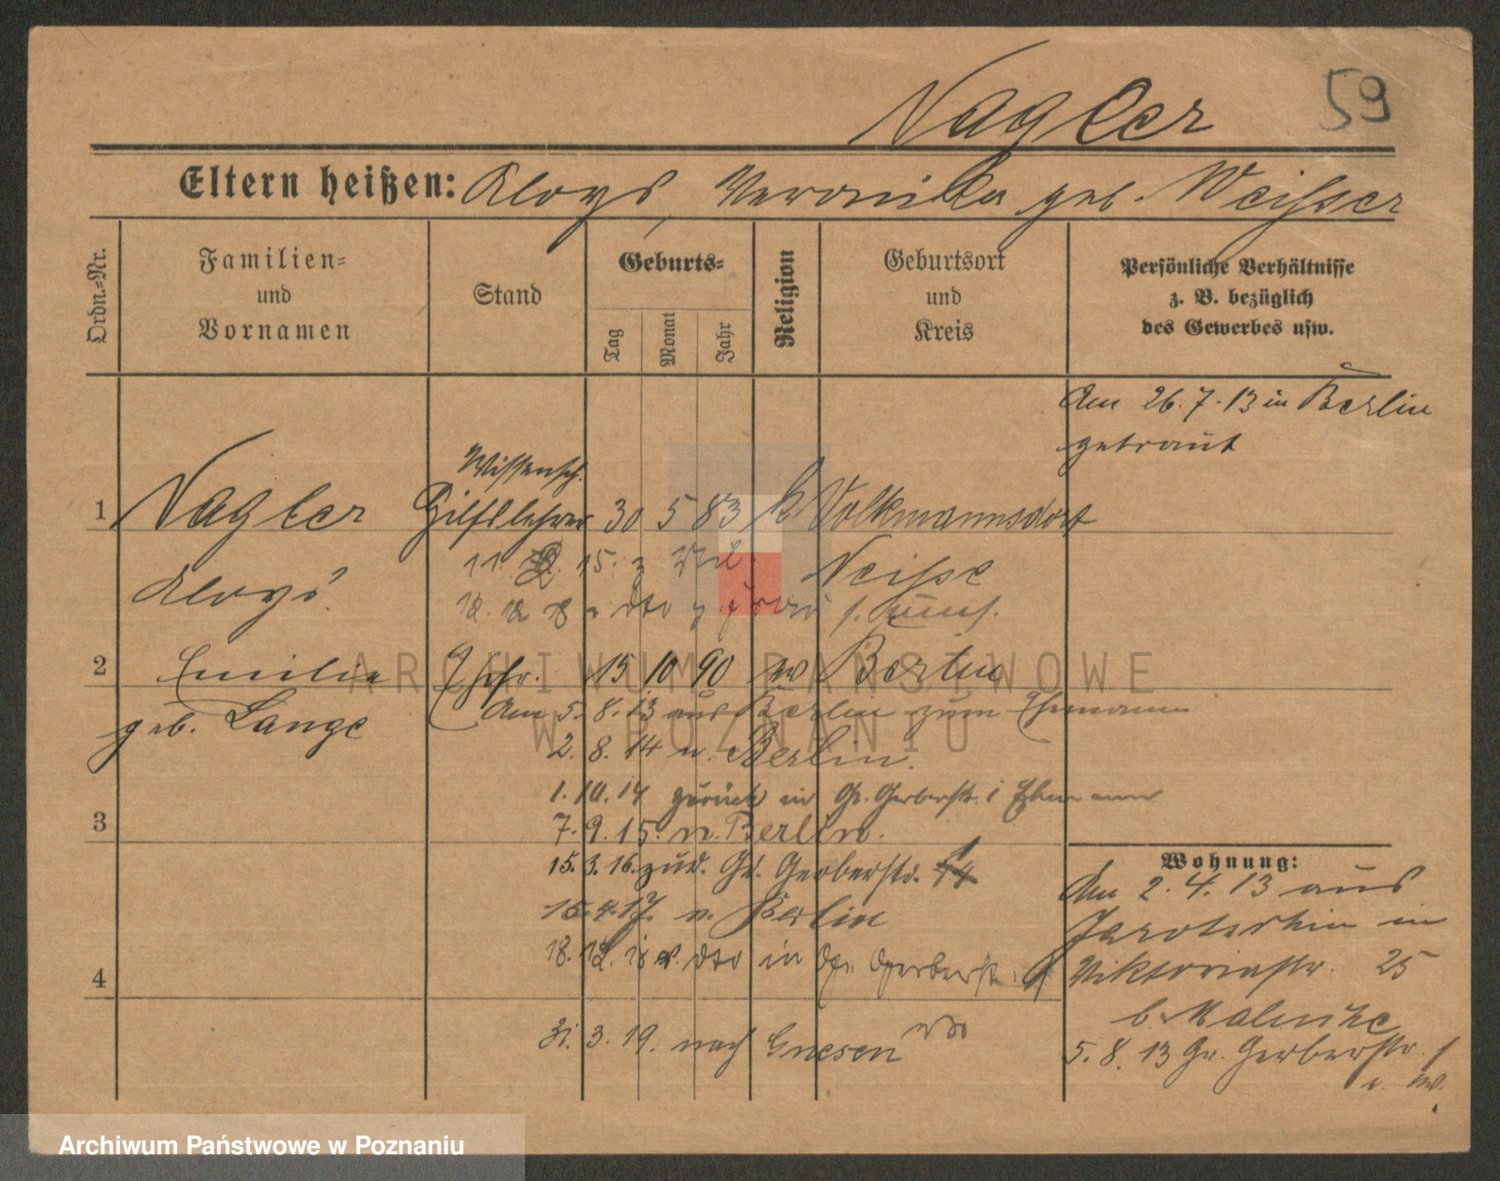 Nagler 59
Eltern heißen: Aloys, Veronika geb. Weisser
Ordn.-Nr.
Familien-
und
Vornamen
Stand
Geburts-
Tag
Monat
Jahr
Religion
Geburtsort
und
Kreis
Persönliche Verhältnisse
z. B. bezüglich
des Gewerbes usw.
Am 26.7.13 in Berlin
getraut
Wissensch.
1 Nagler Hilfslehrer 30 5 83 k Volkmannsdorf
11. 15. z
Aloys. Neisse
18. 12 18 v. dto z
2 Emilie Ehefr. 15 10 90 Berlin
geb. Lange
Am 5.8.13 aus Berlin zum Ehemann
2.8.14 n. Berlin.
1.10.14 zurück in Gr. Gerberstr. Ehemann
3
7.9.15. n. Berlin.
15.3.16. zur. Gr. Gerberstr. 14
15.4.17. n. Berlin
18.12.18 v. dto in Gr. Gerberstr.
4
31.3.19. nach Gnesen
Wohnung:
Am 2.4.13 aus
Jarotschin in
Viktoriastr. 25
b.
5.8.13 Gr. Gerberstr.
ARCHIWUM PAŃSTWOWE
W POZNANIU
Archiwum Państwowe w Poznaniu